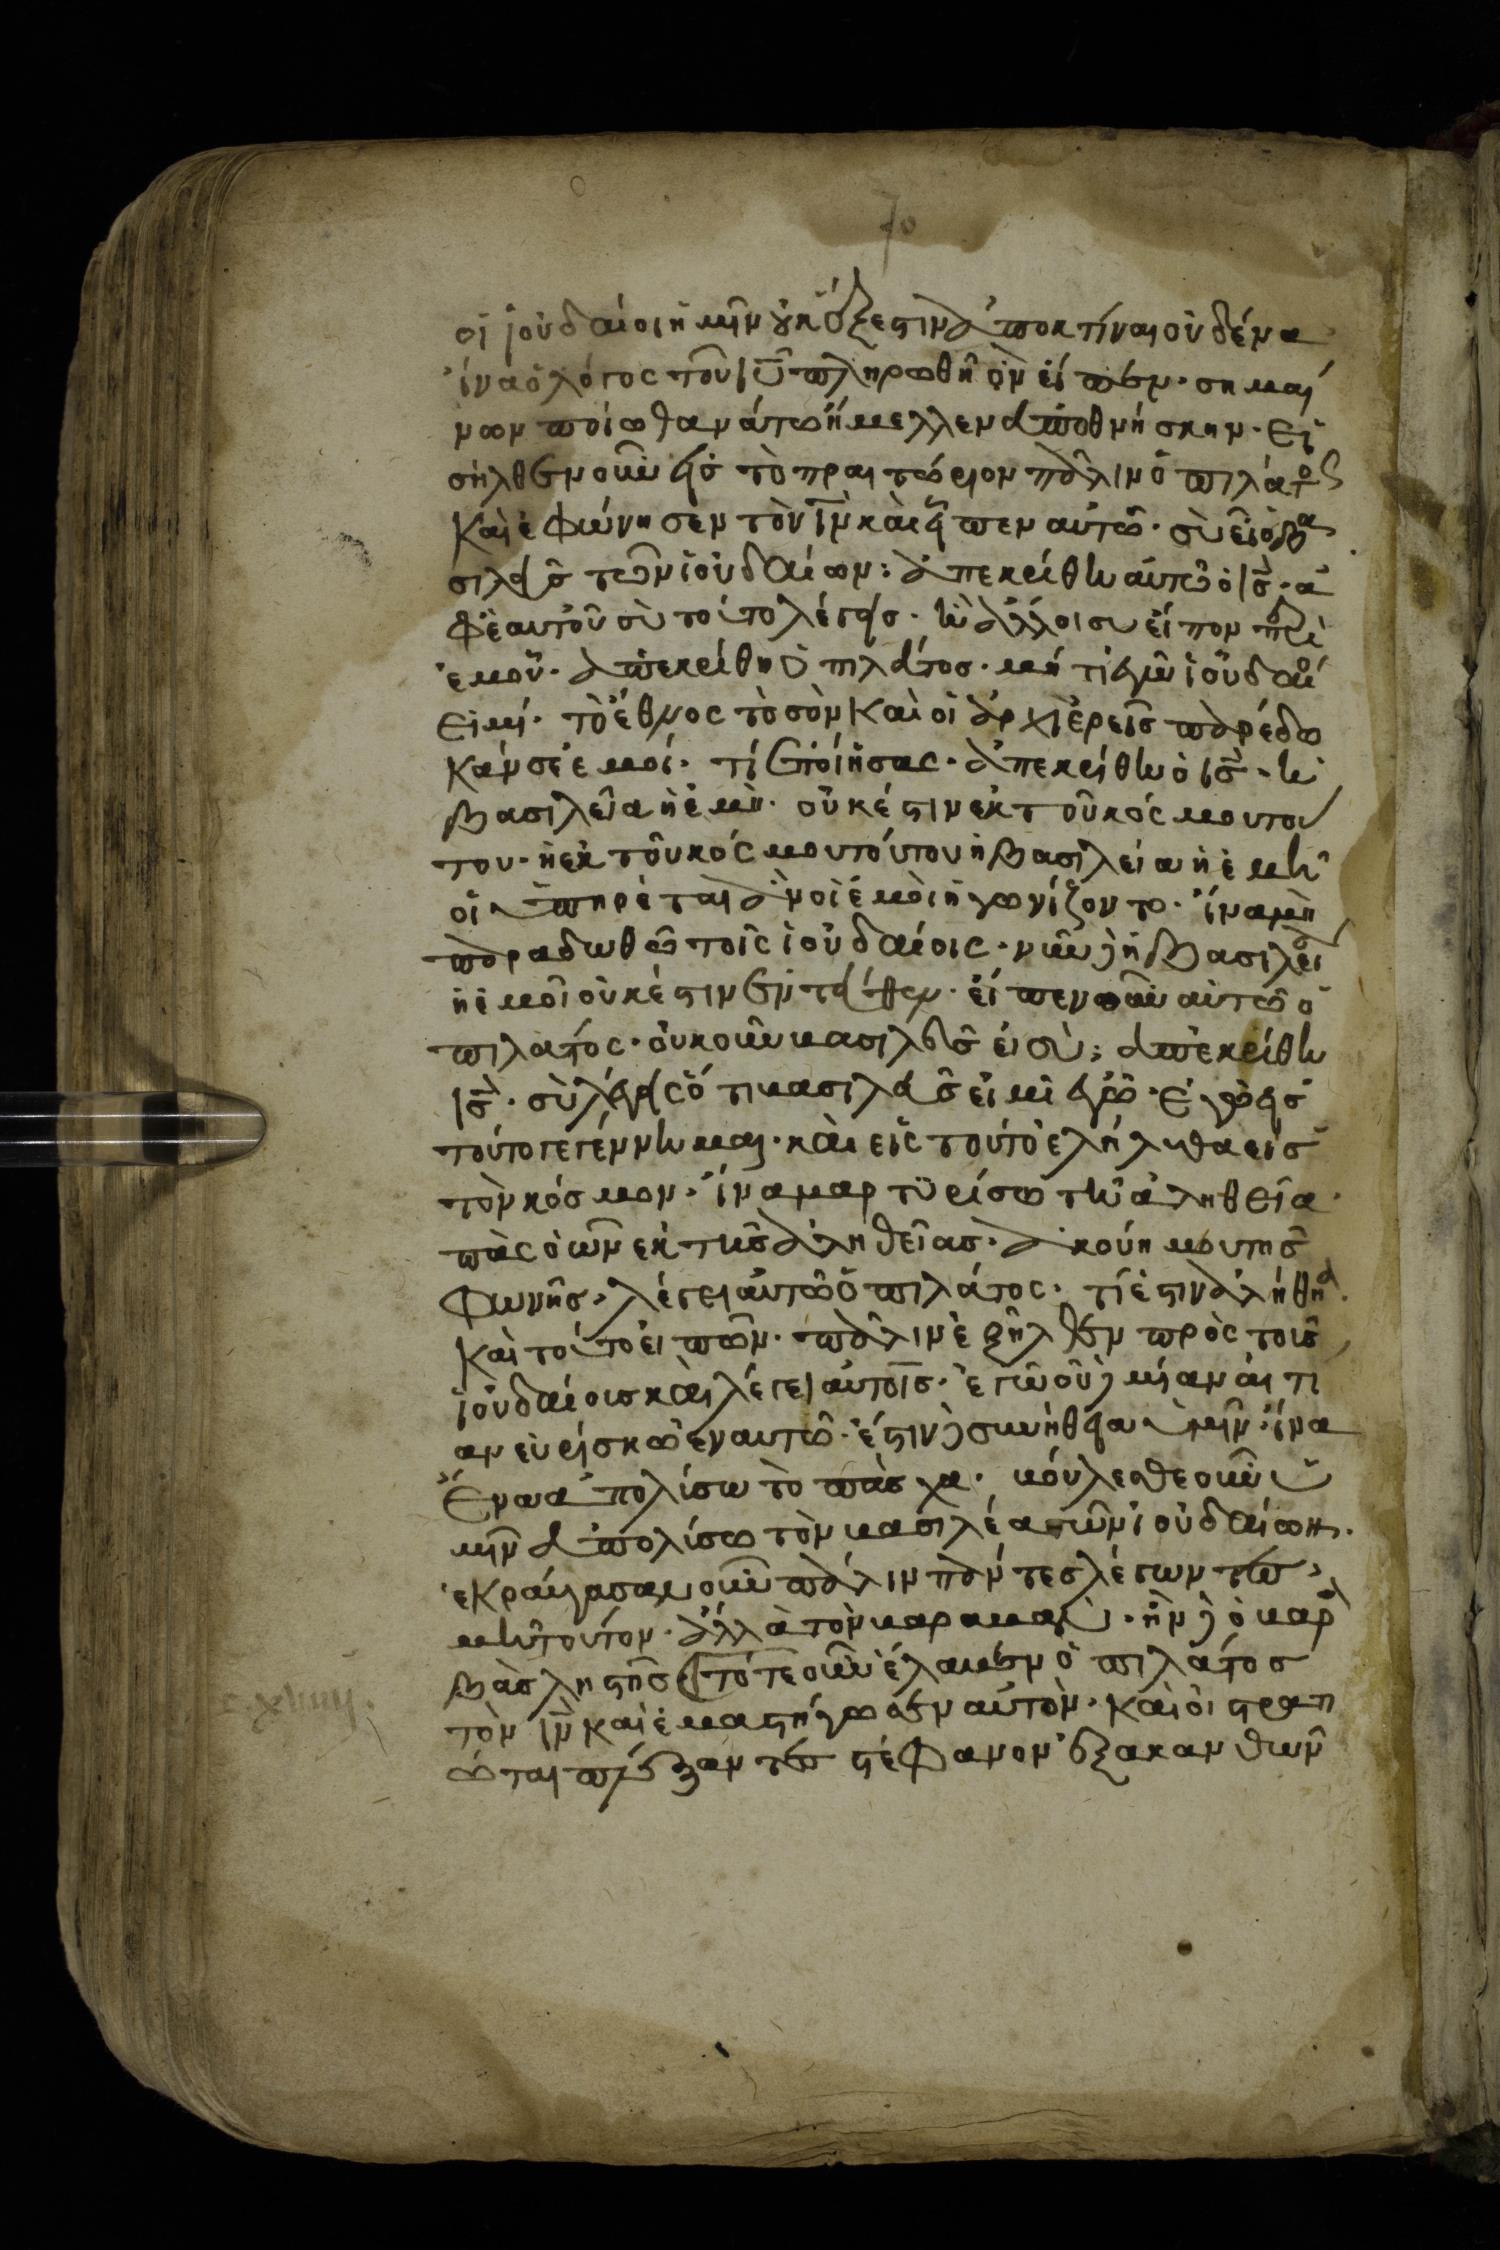 70
οἱ ἰουδαίοι ἡμῖν οὐκ ἔξεστιν ἀποκτίναι οὐδένα
ἵνα ὁ λόγος τοῦ ιῦ πληρωθῆ ὃν εἶπεν· σημαί
νων ποίω θανάτω ἤμελλεν ἀποθνήσκην· εἰ
σῆλθεν οὖν εἰς τὸ πραιτώριον πάλιν ὁ πιλάτος
καὶ ἐφώνησεν τὸν ιν καὶ εἶπεν αὐτῶ· σὺ εἶ ὁ βα
σιλεὺς τῶν ἰουδαίων; ἀπεκρίθη αὐτῶ ὁ ις· ἀ
φ' ἑαυτοῦ σὺ τούτο λέγεις· ἢ ἄλλοι συ εἶπον περὶ
ἐμοῦ· ἀπεκρίθη ὁ πιλάτος· μή τι ἐγὼ ἰουδαῖο
εἰμί· τὸ ἔθνος τὸ σὸν καὶ οἱ ἀρχιερεῖς παρέδω
κάν σε ἐμοί· τί ἐποίησας· ἀπεκρίθη ὁ ις· ἡ
βασιλεῖα ἡ ἐμὴ· οὐκ έστιν ἐκ τοῦ κόσμου τού
του· ἢ ἐκ τοῦ κόσμου τούτου ἡ βασιλεία ἡ ἐμὴ
οἱ ὑπηρέται ἂν οἱ ἐμοὶ ἠγωνίζοντο· ἵνα μὴ
παραδωθῶ τοῖς ἰουδαίοις· νῦν δὲ ἡ βασιλεία
ἡ ἐμοὶ οὐκ έστιν ἐντεύθεν· εἶπεν οὖν αὐτῶ ὁ
πιλάτος· οὐκοῦν βασιλεὺς εἶ σὺ; ἀπεκρίθη
ις· σὺ λέγεις ὅτι βασιλεὺς εἰμὶ ἐγὼ· ἐγὼ εἰς
τούτο γεγέννημαι· καὶ εἰς τούτο ἐλήλυθα εἰς
τὸν κόσμον· ἵνα μαρτυρίσω τῆ ἀληθεῖα·
πᾶς ὁ ὢν ἐκ τῆς ἀληθεῖας· ἀκούη μου της
φωνῆς· λέγει αὐτῶ ὁ πιλάτος· τί ἐστιν ἀλήθηα·
καὶ τούτο εἰπῶν· πάλιν ἐξῆλθεν πρὸς τοὺς
ἰουδαίους καὶ λέγει αὐτοῖς· ἐγὼ οὐδὲμίαν αἰτί
αν εὑρίσκω ἐν αυτῶ· ἔστιν δὲ συνήθεια ὑμῖν· ἵνα
ἕνα ἀπολίσω τὸ πάσχα· βούλεσθε οὖν ὑ
μῖν ἀπολίσω τὸν βασιλέα τῶν ἰουδαίων·
ἐκραύγασαν οὖν πάλιν πάντες λέγωντες·
μὴ τούτον· ἀλλὰ τὸν βαραββάν· ἦν δὲ ὁ βαρα
βὰς ληστῆς τότε οὖν ἔλαβεν ὁ πιλάτος
τὸν ιν καὶ ἐμαστήγωσεν αὐτὸν· καὶ οἱ στρατη
ῶται πλέξαντες στέφανον ἐξ ακανθων